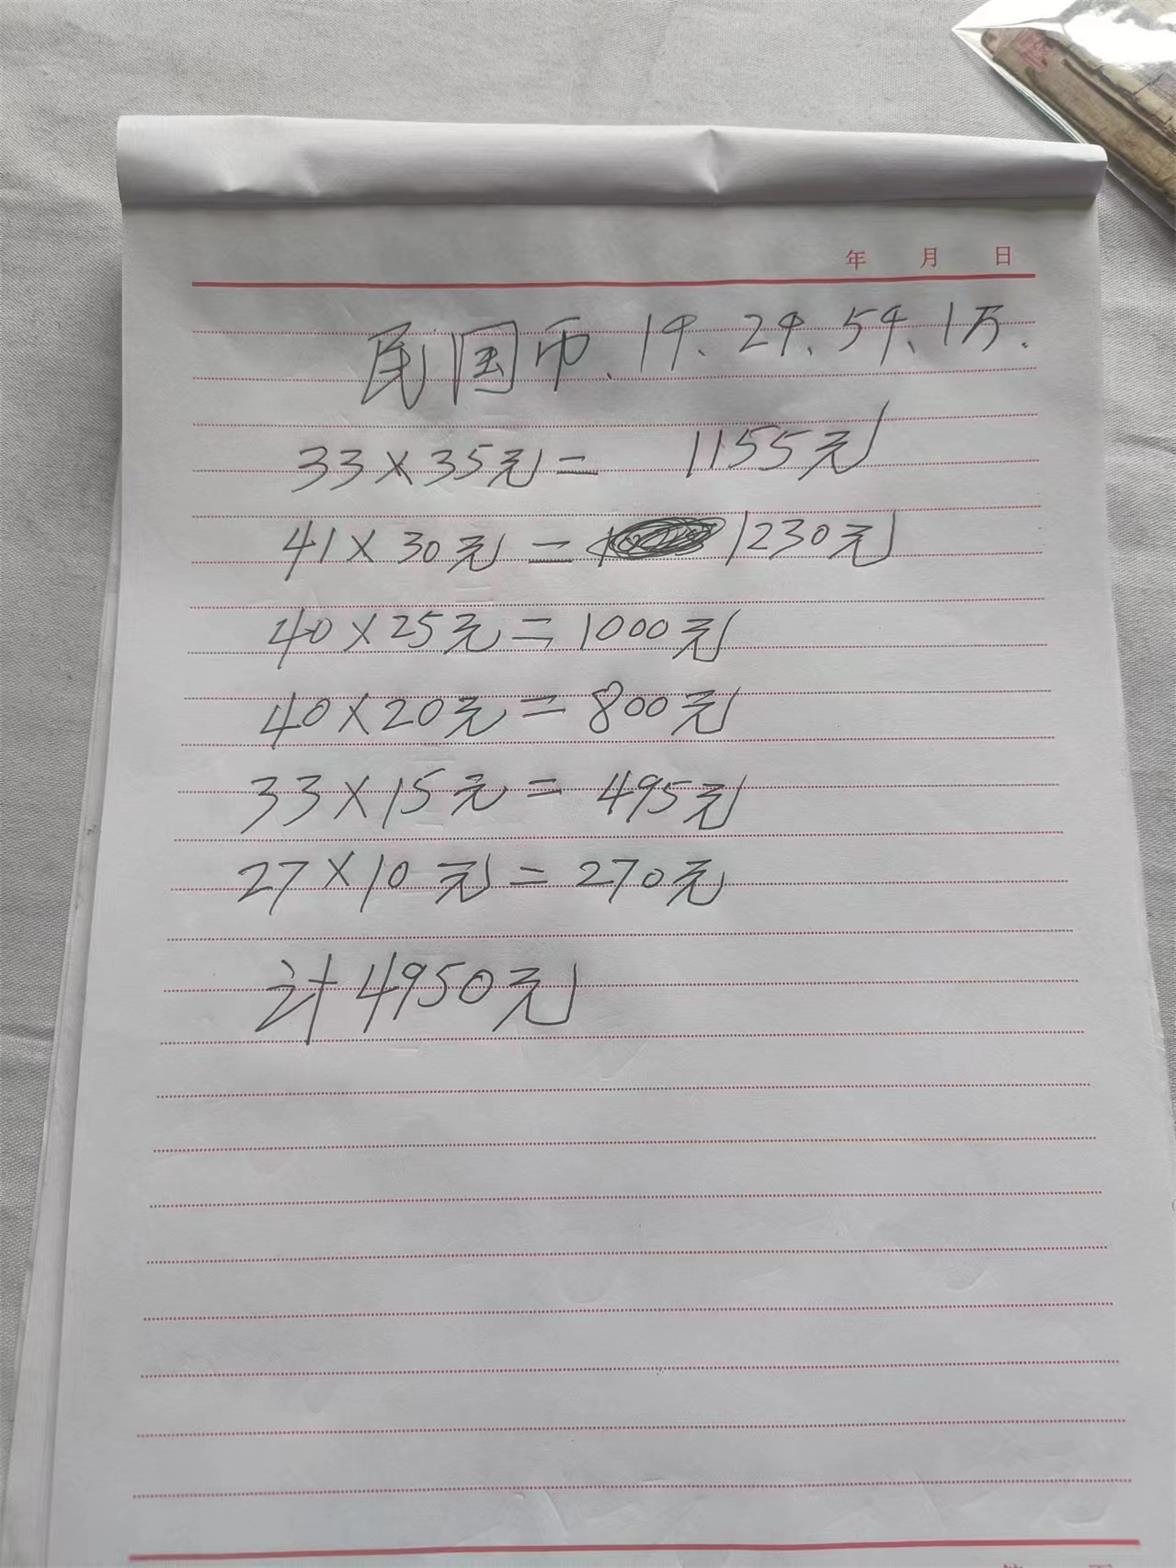 年 月 日
民国币、1千、2千、5千、1万.
33×35元= 1155元
41×30元= 1230元
40×25元=1000元
40×20元=800元
33×15元=495元
27×10元=270元
计4950元